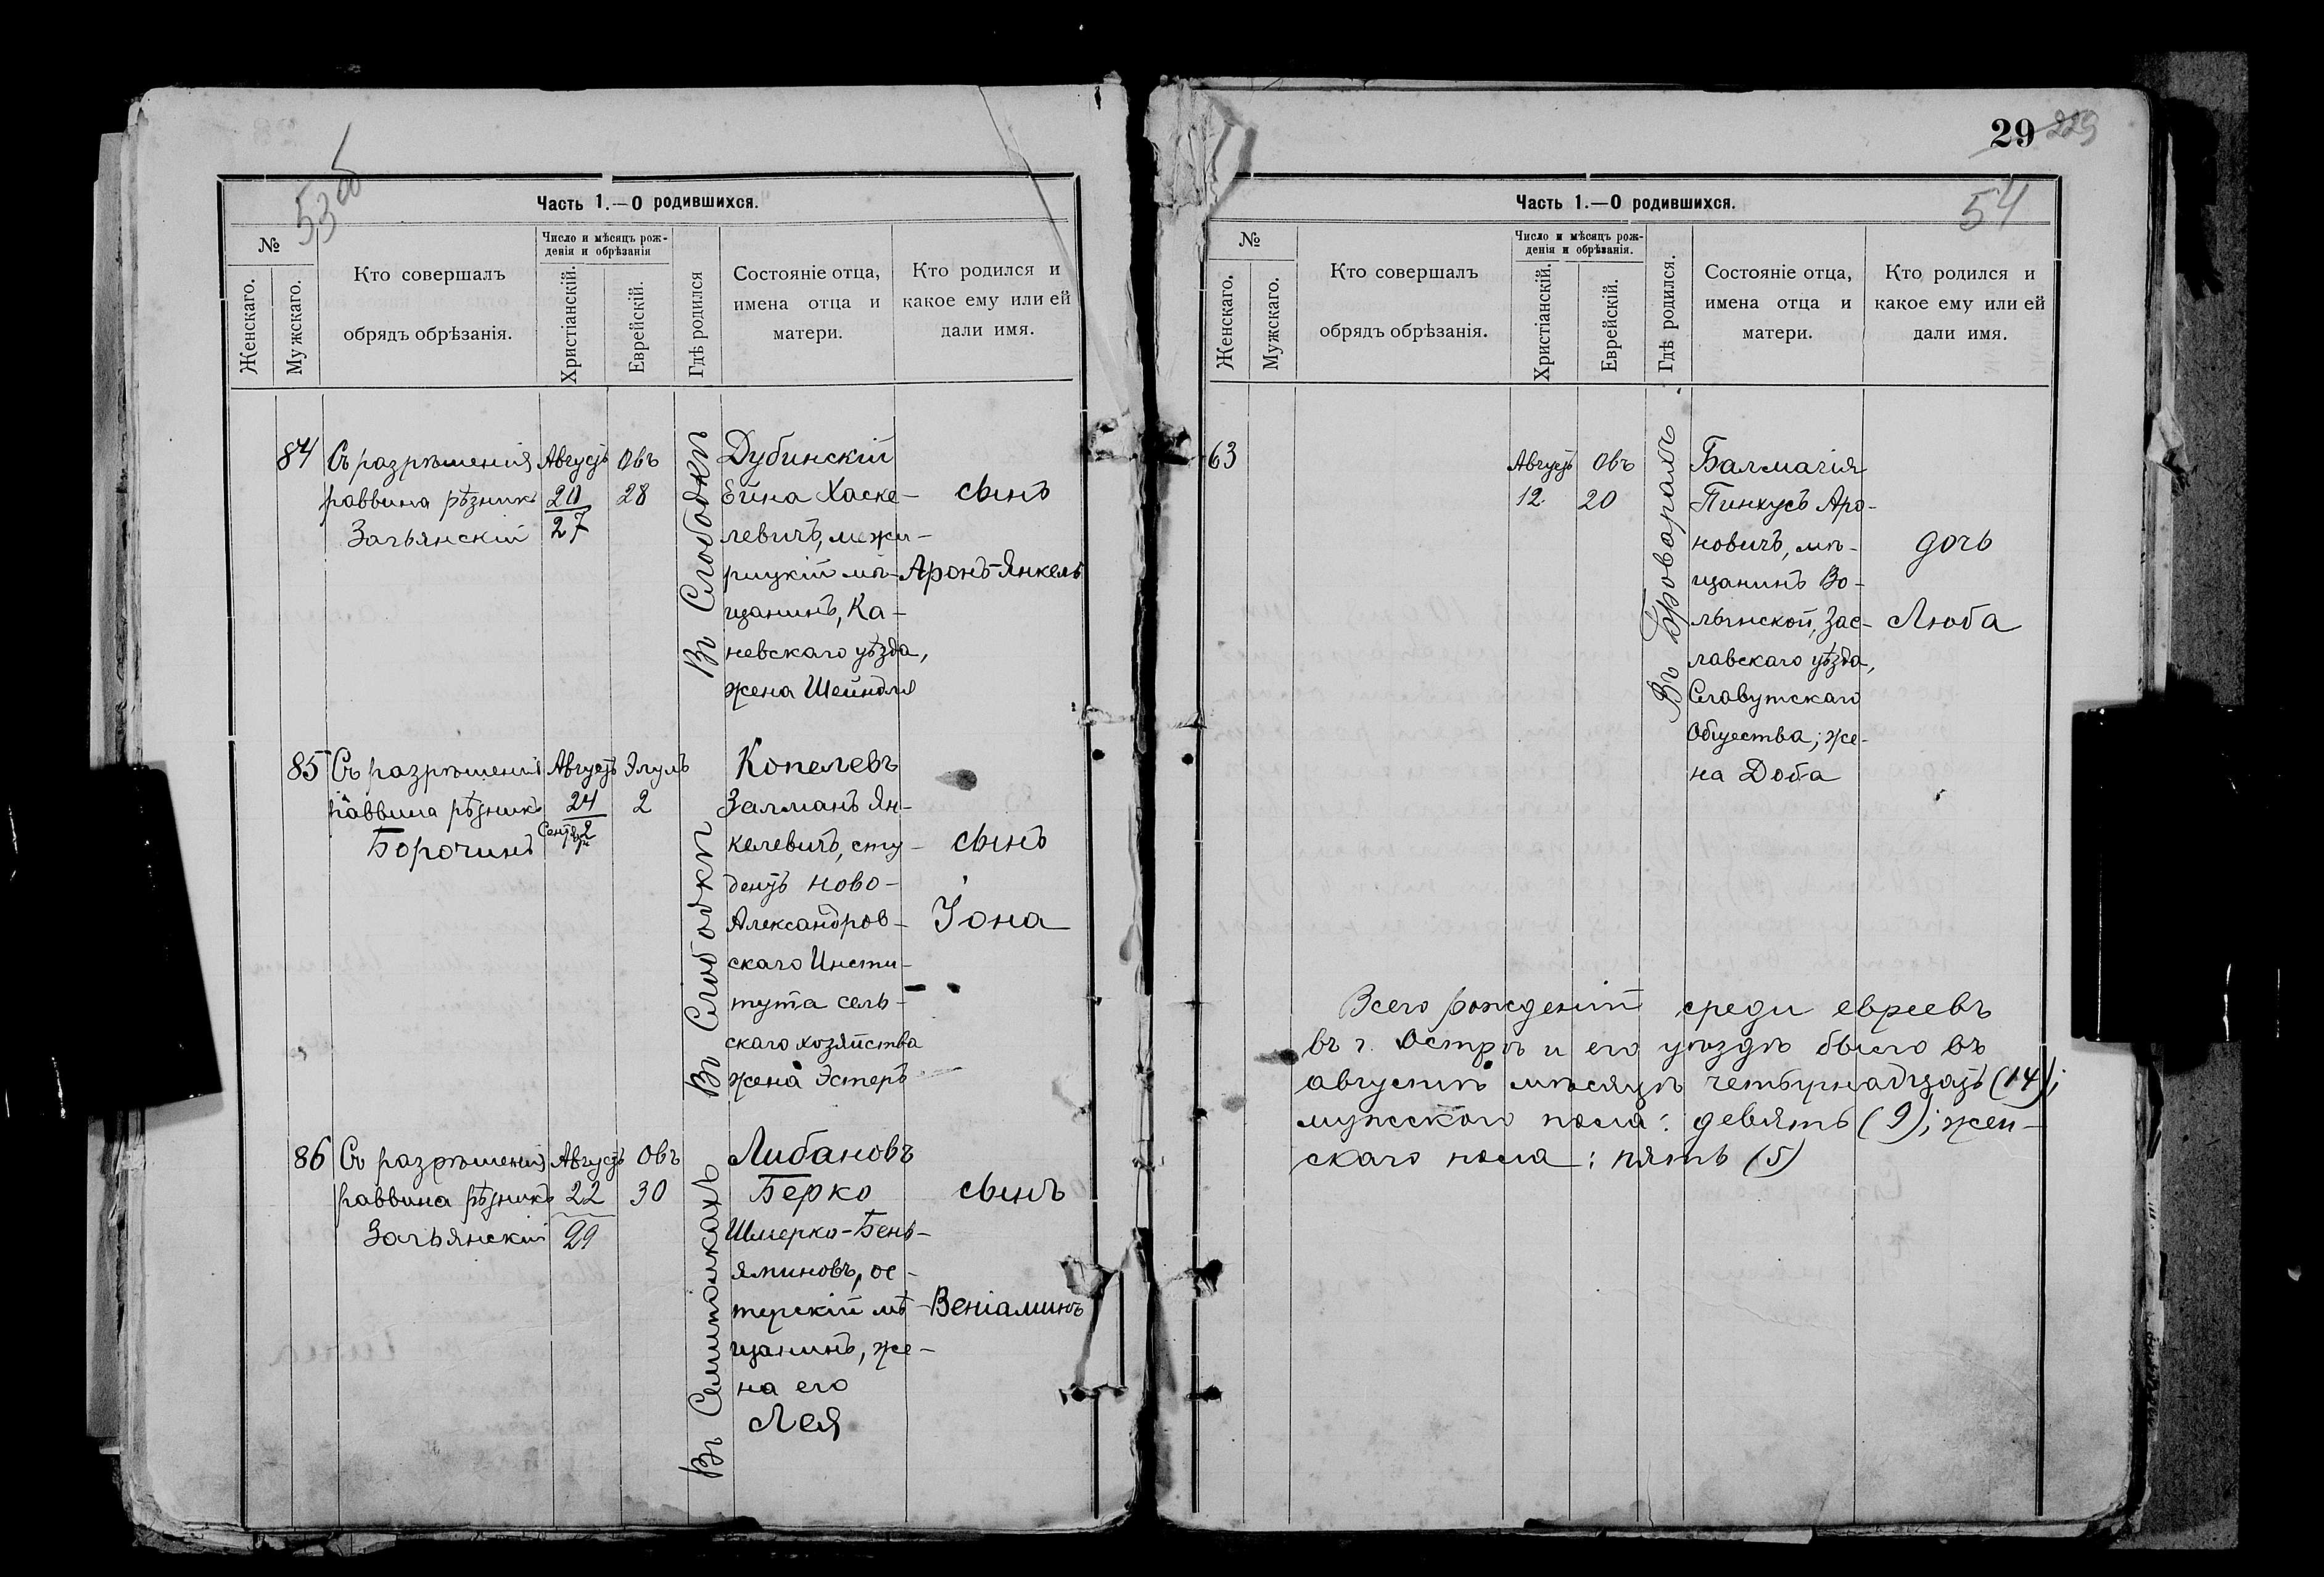 53 об
Часть 1.—О родившихся.
№
Женскаго.
Мужскаго.
Кто совершалъ
обрядъ обрѣзанія.
Число и мѣсяцъ рож-
денія и обрѣзанія
Христіанскій.
Еврейскій.
Гдѣ родился
Состояніе отца,
имена отца и
матери.
Кто родился и
какое ему или ей
дали имя.
84
Съ разрѣшенія
раввина рѣзникъ
Зачьянскій
Августъ
20
27
Овъ
28
Въ Слободкѣ
Дубинскій
Ейна Хаске-
левичъ, межи-
рицкій мѣ-
щанинъ, Ка-
невскаго уѣзда,
жена Шейндля
сынъ
Аронъ-Янкель
85
Съ разрѣшенія
раввина рѣзникъ
Борочинъ
Августъ
24
Сентября 2
Элулъ
2
Въ Слободкѣ
Копелевъ
Залманъ Ян-
келевичъ, сту-
дентъ Ново-
Александров-
скаго Инсти-
тута сель-
скаго хозяйства
жена Эстеръ
сынъ
Іона
86
Съ разрѣшенія
раввина рѣзникъ
Зачьянскій
Августъ
22
29
Овъ
30
Въ Семиполкахъ
Либановъ
Берко
Шмерко-Бень-
яминовъ, ос-
терскій мѣ-
щанинъ, же-
на его
Лея
сынъ
Веніаминъ
29 229
54
Часть 1.—О родившихся.
№
Женскаго.
Мужскаго.
Кто совершалъ
обрядъ обрѣзанія.
Число и мѣсяцъ рож-
денія и обрѣзанія.
Христіанскій.
Еврейскій.
Гдѣ родился.
Состояніе отца,
имена отца и
матери.
Кто родился и
какое ему или ей
дали имя.
63
Августъ
12
Овъ
20
Въ Броварахъ
Балмагія
Пинхусъ Аро-
новичъ, мѣ-
щанинъ Во-
лынской, Зас-
лавскаго уѣзда,
Славутскаго
Общества; же-
на Доба
дочь
Люба
Всего рожденій среди евреевъ
въ г. Острѣ и его уѣздѣ было въ
августѣ мѣсяцѣ четырнадцать (14);
мужского пола: девять (9); жен-
скаго пола: пять (5)